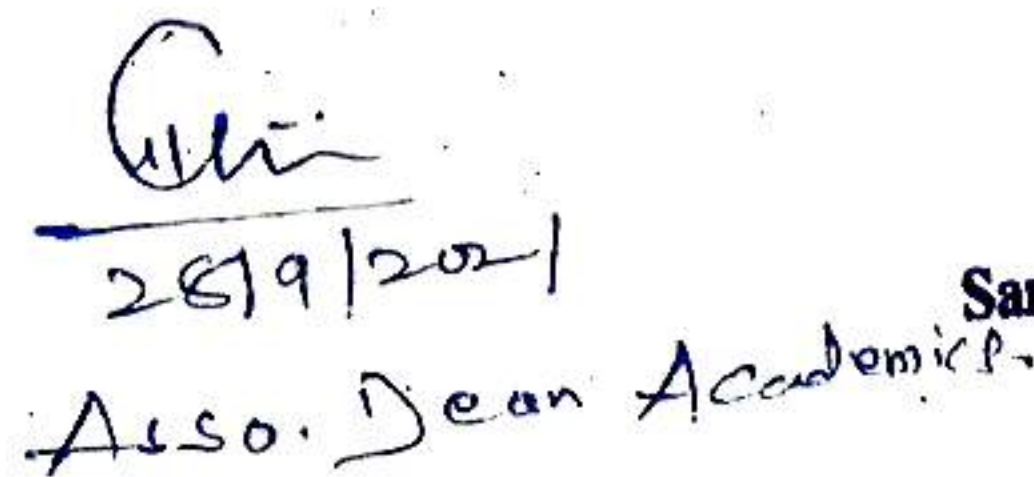 28/9/2021
Sa
Asso. Dean Academics.